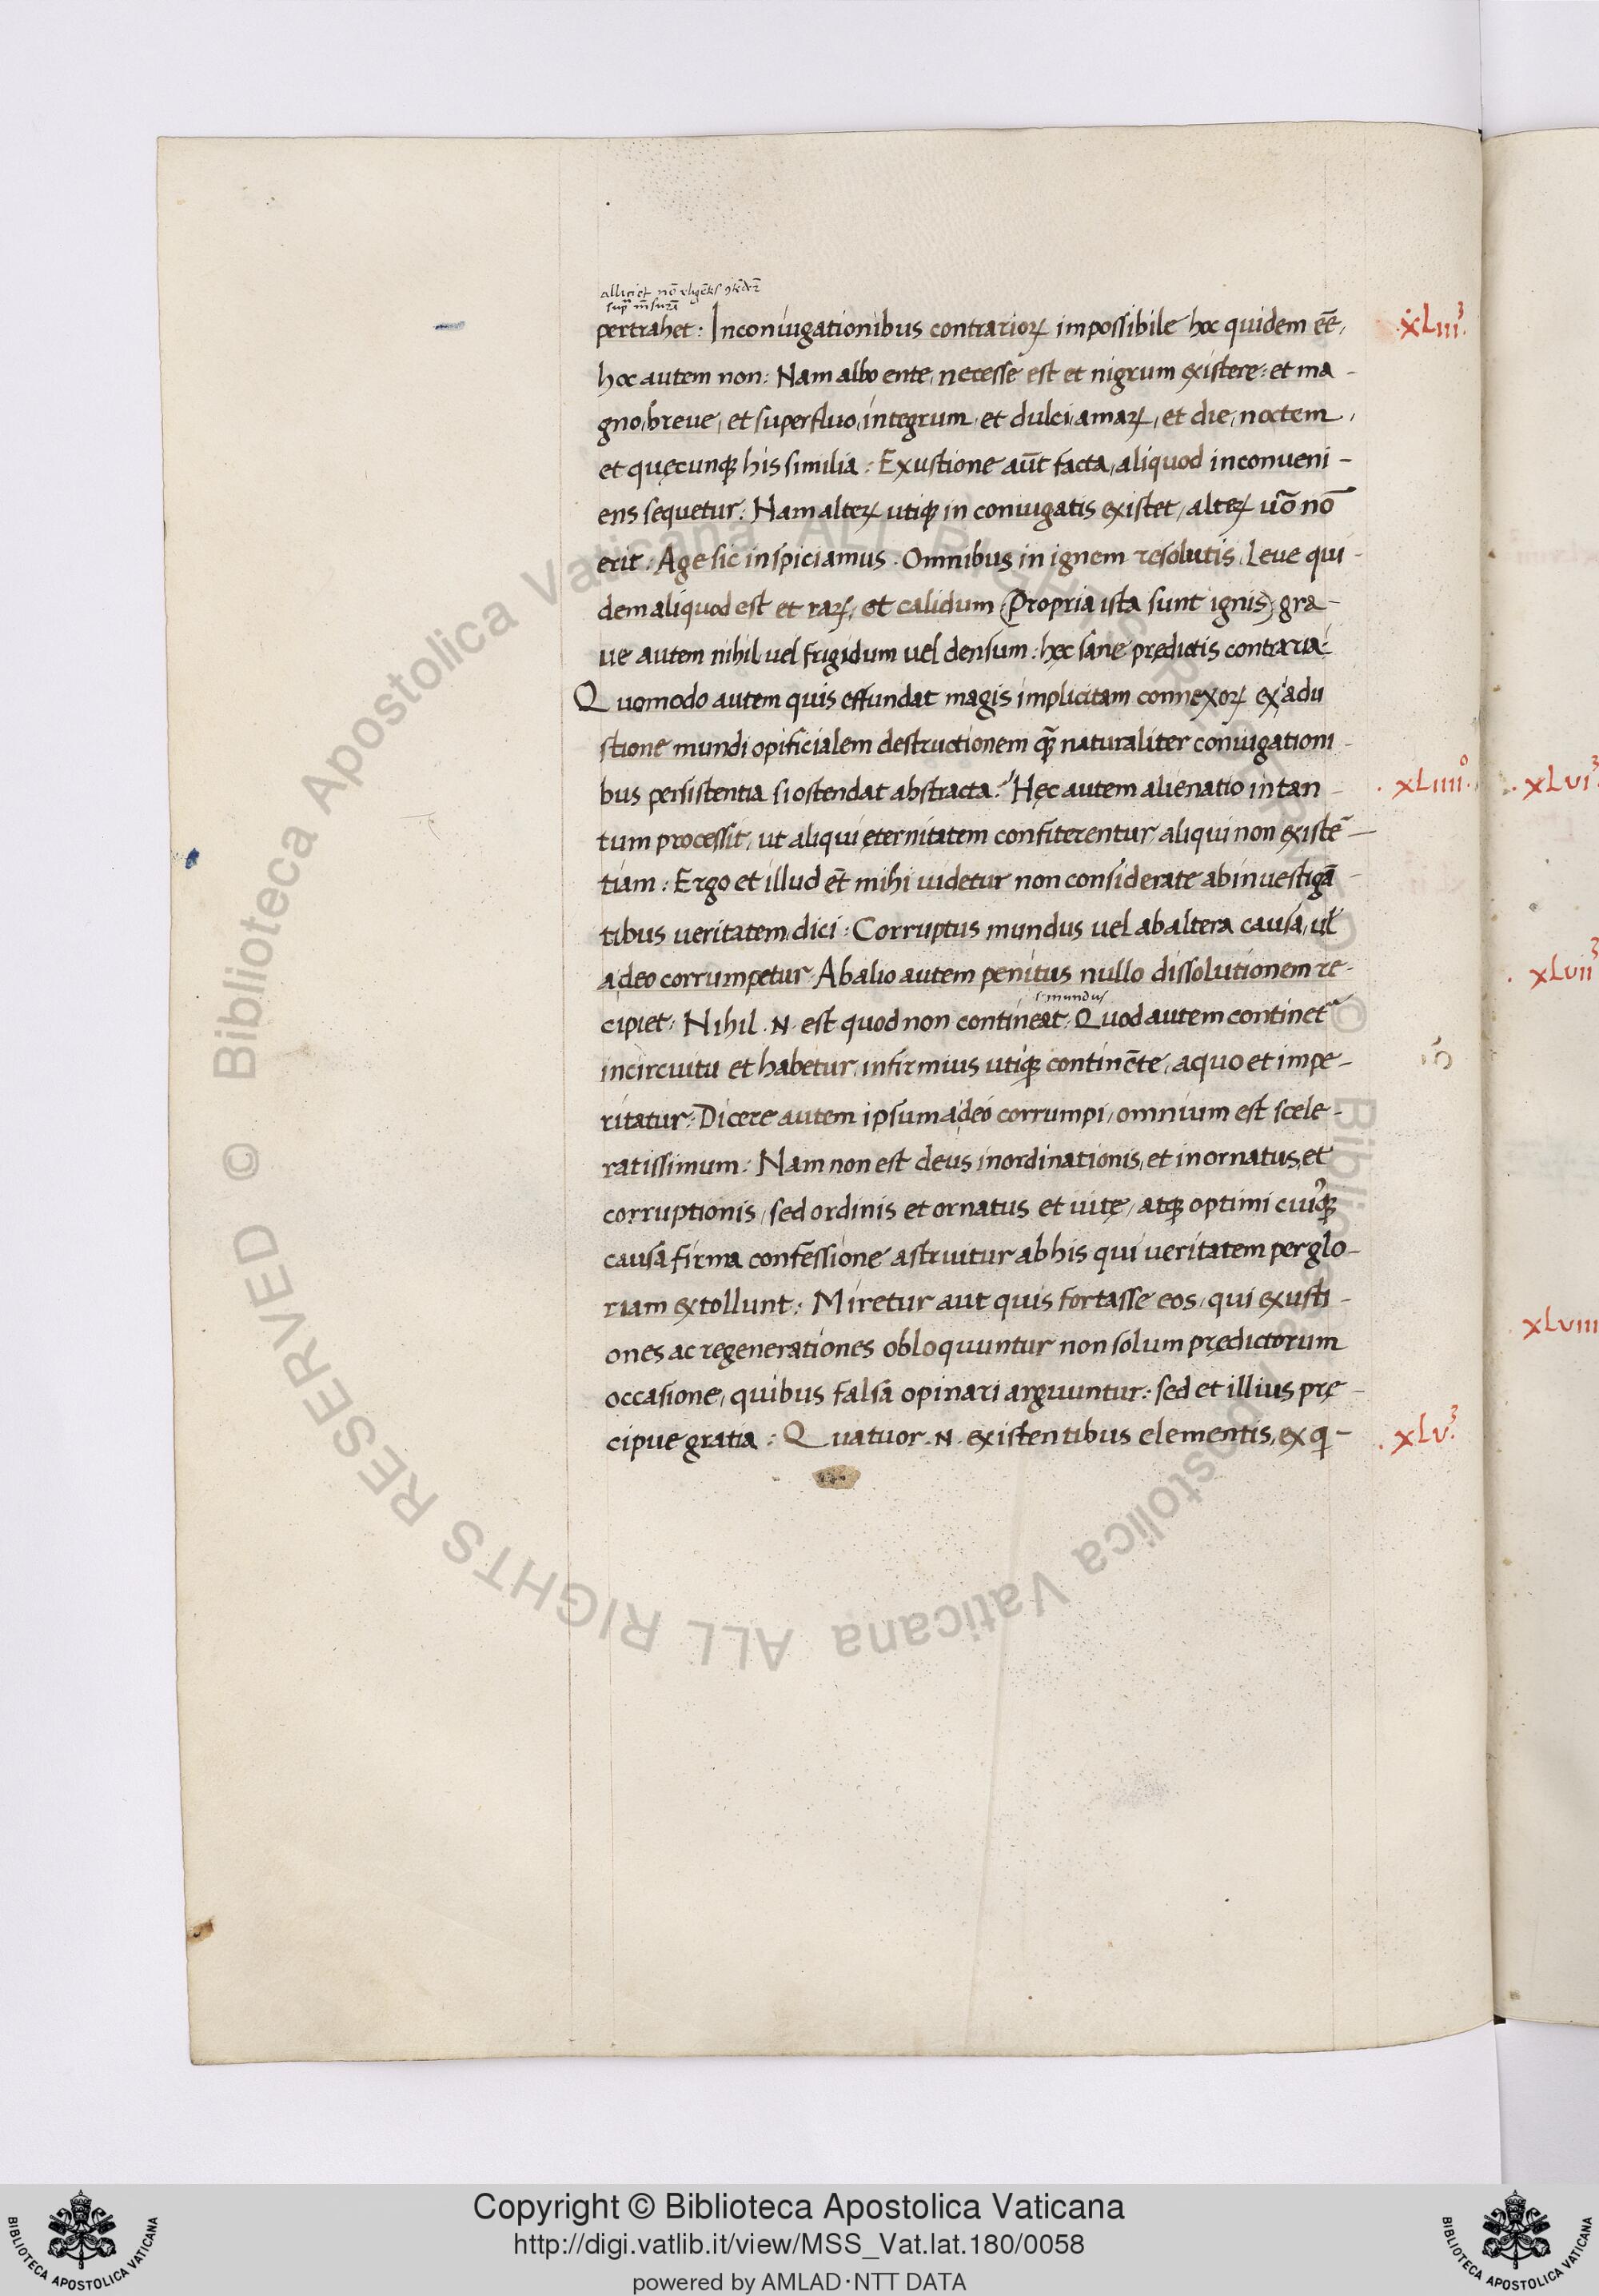 alliciet nō
supra mēsurā
pertrahet: In coniugationibus contrarioꝝ impossibile hoc quidem eē,
hoc autem non: Nam albo ente, necesse est et nigrum existere: et ma-
gno, breue, et superfluo, integrum, et dulci, amaꝝ, et die, noctem,
et quęcunqꝫ his similia: Exustione aūt facta, aliquod inconueni-
ens sequetur: Nam alteꝝ utiqꝫ in coniugatis existet, alteꝝ uō nō
erit: Age sic inspiciamus. Omnibus in ignem resolutis, Leue qui-
dem aliquod est et raꝝ, et calidum (Propria ista sunt ignis); gra-
ue autem nihil uel frigidum uel densum: hęc sane prędictis contraria:
Quomodo autem quis effundat magis implicitam connexoꝝ ex adu
stione mundi opificialem destructionem qꝫ naturaliter coniugationi-
bus persistentia si ostendat abstracta: Hęc autem alienatio in tan-
tum processit, ut aliqui ęternitatem confiterentur, aliqui non existē-
tiam: Ergo et illud eт̄ mihi uidetur non considerate ab inuestigā-
tibus veritatem dici: Corruptus mundus uel ab altera causa, uł
a deo corrumpetur. Ab alio autem penitus nullo dissolutionem re-
s. mundus
cipiet: Nihil .N. est quod non contineat: Quod autem continet
in circuitu et habetur, infirmius utiqꝫ continēte, a quo et impe-
ritatur: Dicere autem ipsum a deo corrumpi, omnium est scele-
ratissimum: Nam non est deus inordinationis, et inornatus, et
corruptionis, sed ordinis et ornatus et uitę, atqꝫ optimi cuiꝰqꝫ
causa firma confessione astruitur ab his qui veritatem per glo-
riam extollunt: Miretur aut quis fortasse eos, qui exusti-
ones ac regenerationes obloquuntur non solum prędictorum
occasione, quibus falsa opinari arguuntur: sed et illius prę-
cipue gratia: Quatuor .N. existentibus elementis, ex q-
.xLiii³.
.xLiiii°.
.xLv³.
.xLvi³.
.xLvii³
xLviii
© Biblioteca Apostolica Vaticana ALL RIGHTS RESERVED
© Biblioteca Apostolica Vaticana ALL RIGHTS RESERVED
Copyright © Biblioteca Apostolica Vaticana
http://digi.vatlib.it/view/MSS_Vat.lat.180/0058
powered by AMLAD·NTT DATA
BIBLIOTECA APOSTOLICA VATICANA
BIBLIOTECA APOSTOLICA VATICANA